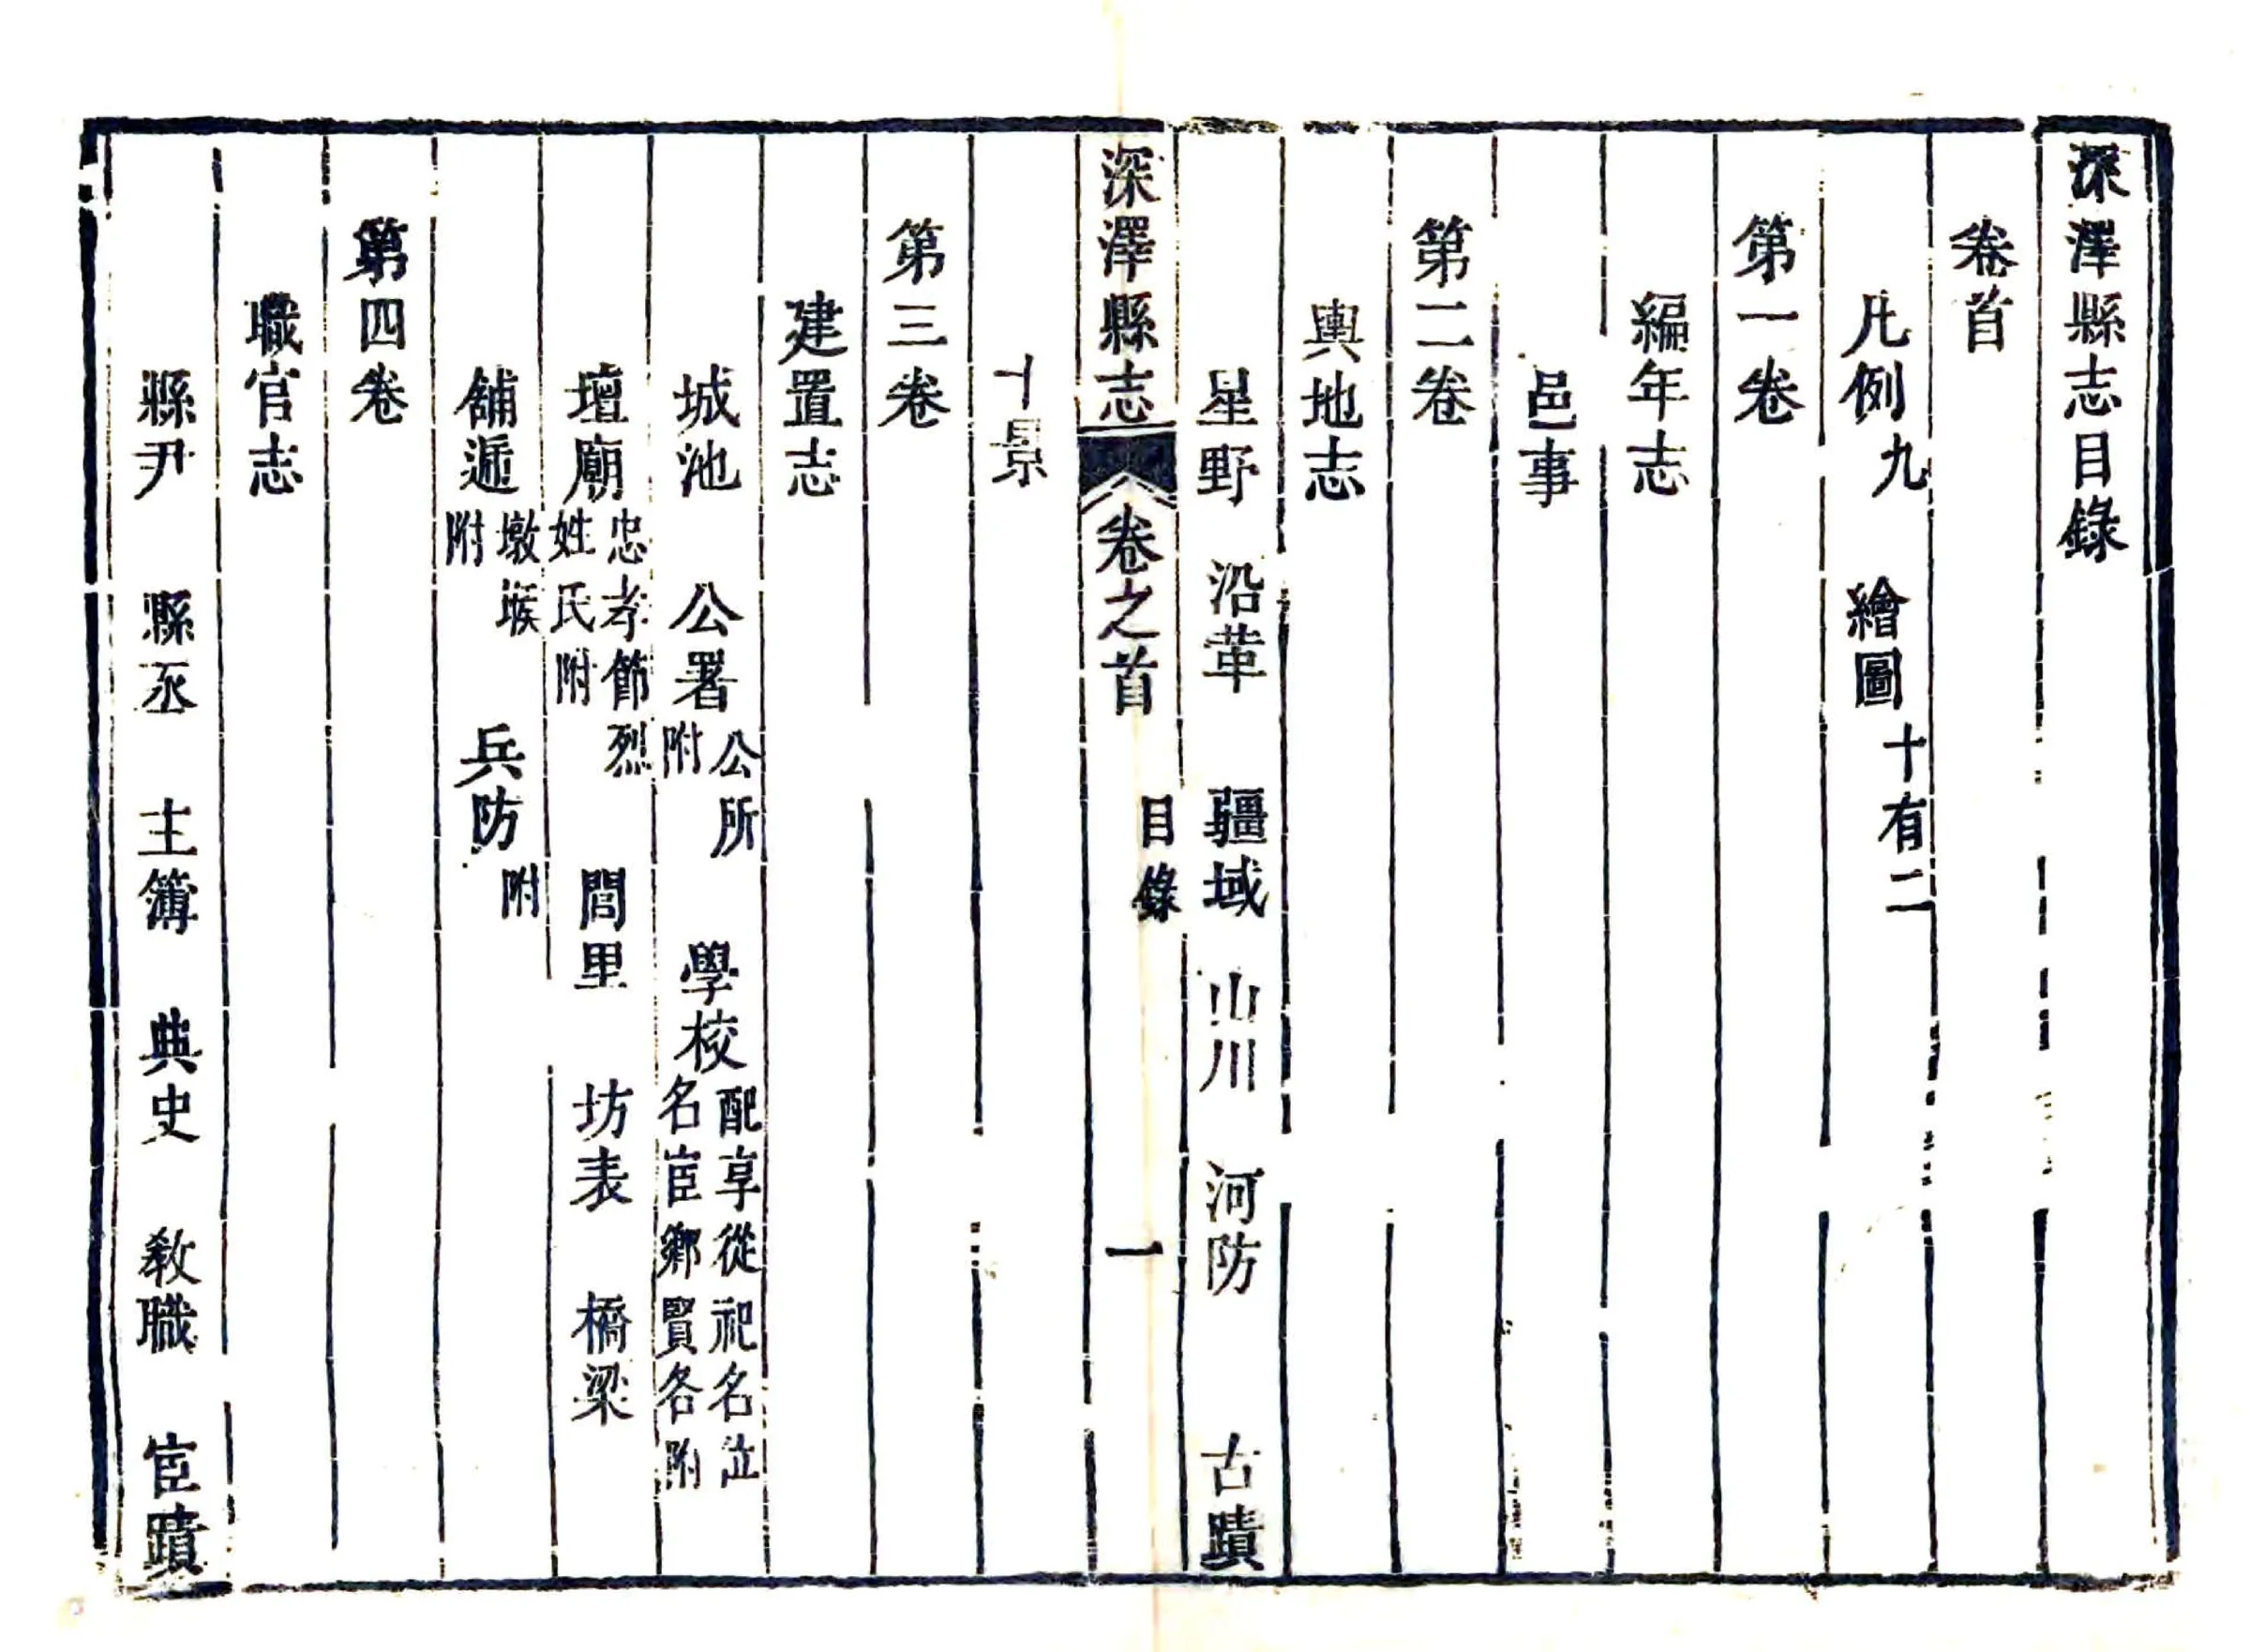 深澤縣志目錄
卷首
凡例九 繪圖十有二
第一卷
編年志
邑事
第二卷
輿地志
星野 沿革 疆域 山川 河防 古蹟
深澤縣志 卷之首 目錄 一
景
第三卷
建置志
城池 公署公所附 學校配享從祀名位名宦鄉賢各附
壇廟忠孝節烈姓氏附 閭里 坊表 橋梁
舖遞墩堠附 兵防附
第四卷
職官志
縣尹 縣丞 主簿 典史 敎職 宦蹟